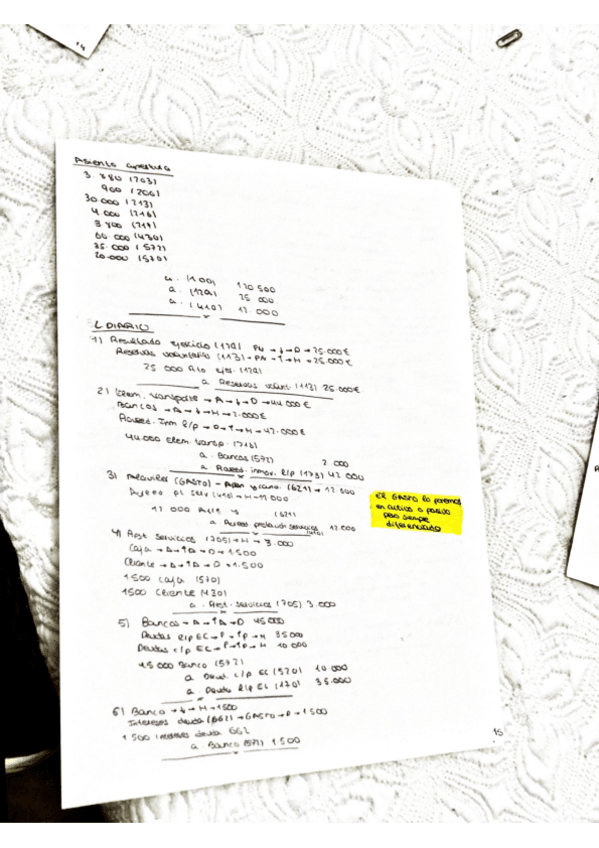 14
Asiento apertura
3.380 (203)
900 (206)
30.000 (213)
4.000 (216)
3.700 (217)
60.000 (430)
35.000 (572)
20.000 (570)
a. (100) 120 500
a. (129) 25 000
a. (410) 12.000
L. DIARIO
1) Resultado ejercicio (129) PN → ↓ → D → 25.000€
Reservas voluntarias (113) → PN → ↑ → H → 25.000€
25 000 Rdo ejer. (129)
a. Reservas volunt. (113) 25.000€
2) Elem. transporte → A → ↓ → D → 44.000€
Bancos → A → ↓ → H → 2.000€
Proveed. Inm R/p → P → ↑ → H → 42.000€
44.000 Elem. transp. (218)
a. Bancos (572) 2.000
a. Proveed. inmov. R/p (173) 42 000
3) Alquiler (GASTO) - (621) → 12.000
Acreed. pt. serv (410) → H → 12.000
12 000 Alq. y (621)
a. Acreed. prestación servicios (410) 12.000
El GASTO lo ponemos
en activo o pasivo
pero siempre
diferenciado
4) Prest. servicios (705) → H → 3.000
Caja → A → ↑A → D → 1.500
Cliente → A → ↑A → D → 1.500
1500 Caja (570)
1500 Cliente (430)
a. Prest. servicios (705) 3.000
5) Bancos → A → ↑A → D 45.000
Deudas R/p EC → P → ↑P → H 35.000
Deudas c/p EC → P → ↑P → H 10.000
45.000 Banco (572)
a Deud. c/p EC (520) 10 000
a. Deuda R/p EC (170) 35.000
6) Banco → ↓ → H → 1500
Intereses deuda (662) → GASTO → D → 1500
1500 Intereses deuda 662
a. Banco (572) 1.500
15